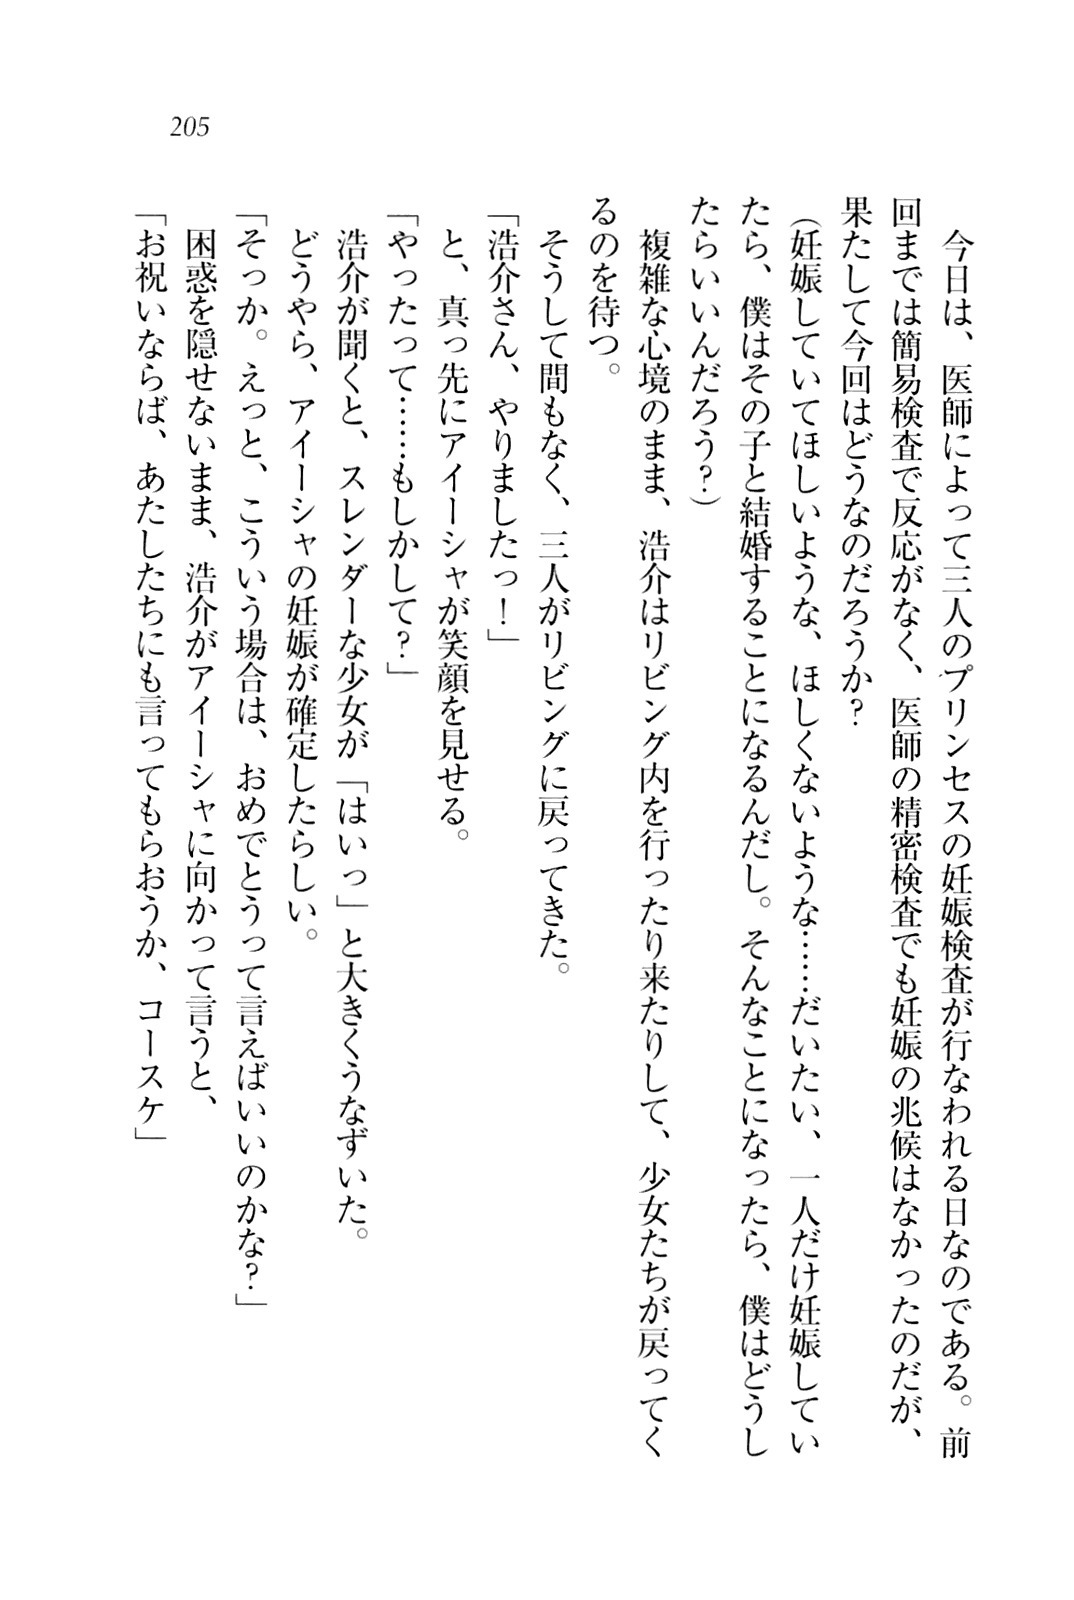 205
　今日は、医師によって三人のプリンセスの妊娠検査が行なわれる日なのである。前
回までは簡易検査で反応がなく、医師の精密検査でも妊娠の兆候はなかったのだが、
果たして今回はどうなのだろうか?
（妊娠していてほしいような、ほしくないような……だいたい、一人だけ妊娠してい
たら、僕はその子と結婚することになるんだし。そんなことになったら、僕はどうし
たらいいんだろう?）
　複雑な心境のまま、浩介はリビング内を行ったり来たりして、少女たちが戻ってく
るのを待つ。
　そうして間もなく、三人がリビングに戻ってきた。
「浩介さん、やりましたっ！」
　と、真っ先にアイーシャが笑顔を見せる。
「やったって……もしかして?」
　浩介が聞くと、スレンダーな少女が「はいっ」と大きくうなずいた。
　どうやら、アイーシャの妊娠が確定したらしい。
「そっか。えっと、こういう場合は、おめでとうって言えばいいのかな?」
　困惑を隠せないまま、浩介がアイーシャに向かって言うと、
「お祝いならば、あたしたちにも言ってもらおうか、コースケ」